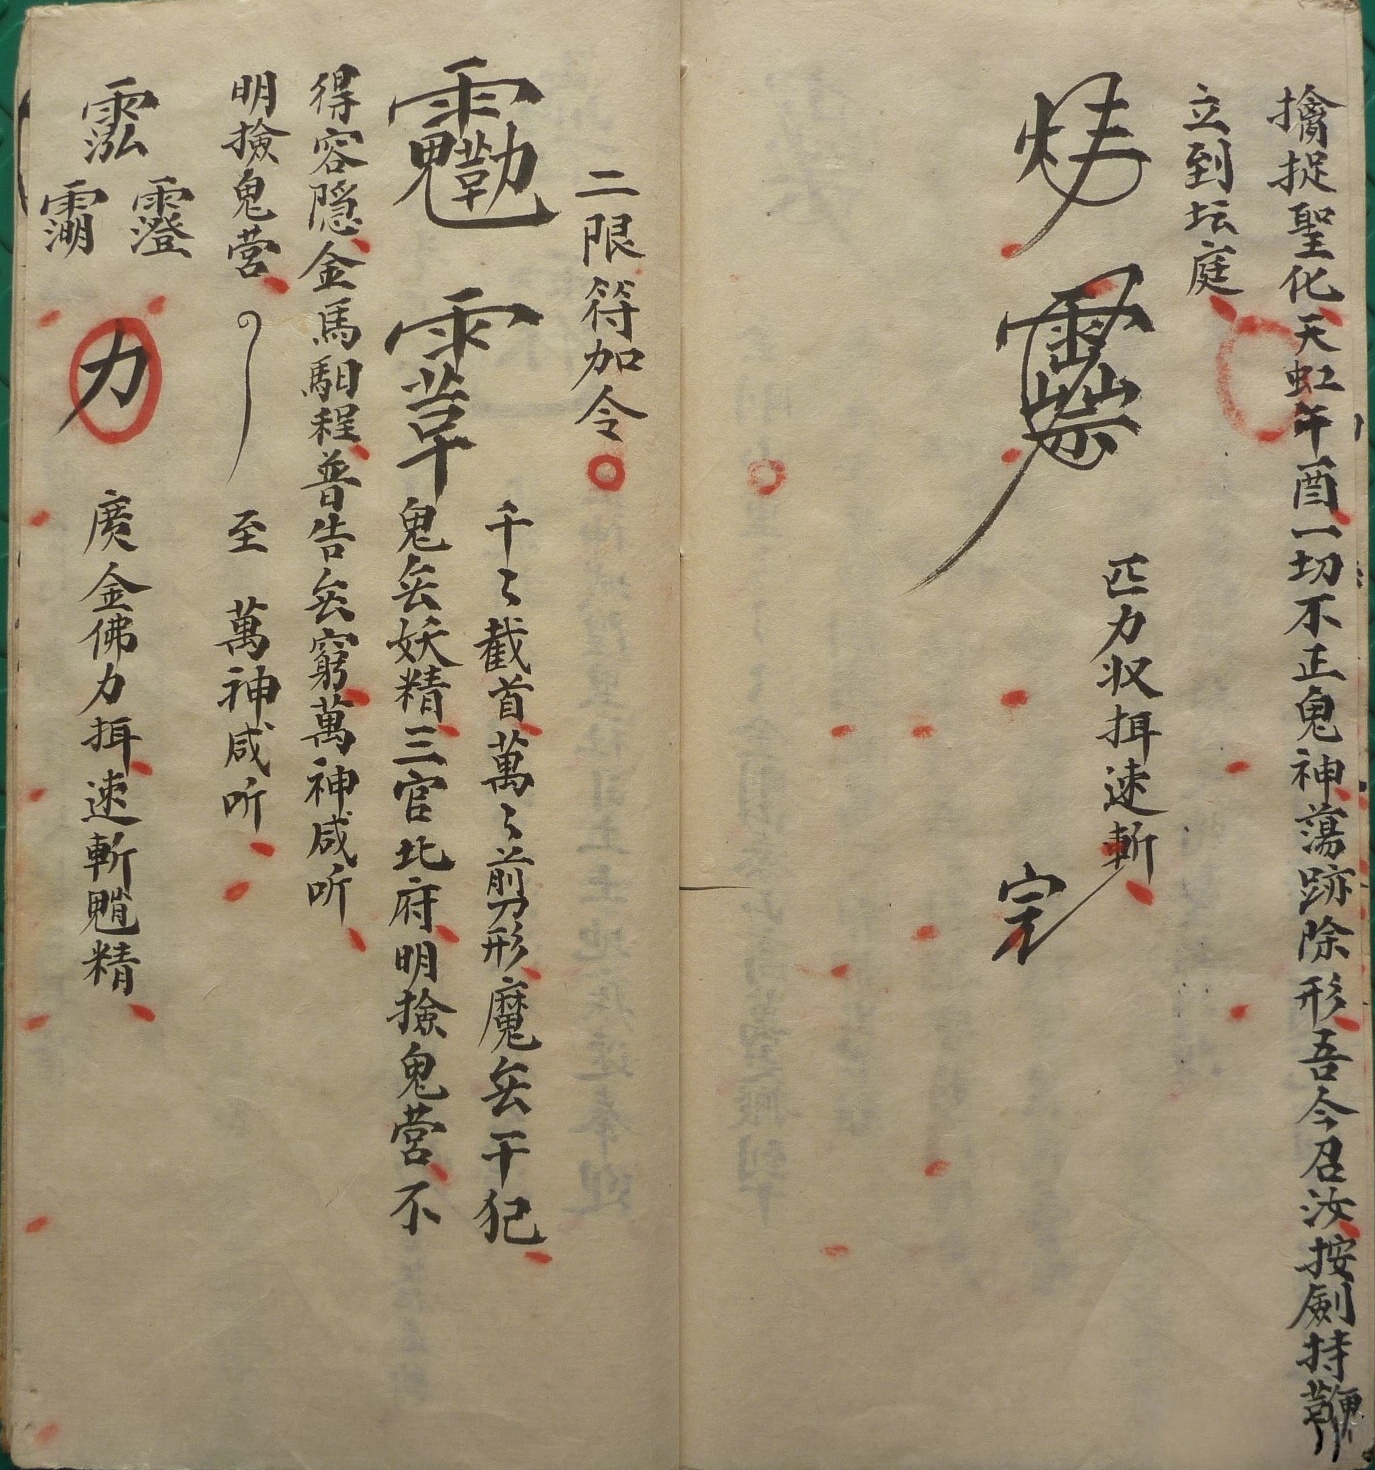 擒捉聖化天虹午酉一切不正鬼神蕩跡除形吾今召汝按劍持鞭
立到坛庭
匹力収挕速斬
完
二限符加令
千〻截首萬〻剪形魔兵干犯
鬼兵妖精三官北府明撿鬼营不
得容隱金馬馹程普告兵窮萬神咸听
明撿鬼营 至 萬神咸听
力 廣金佛力挕速斬魈精